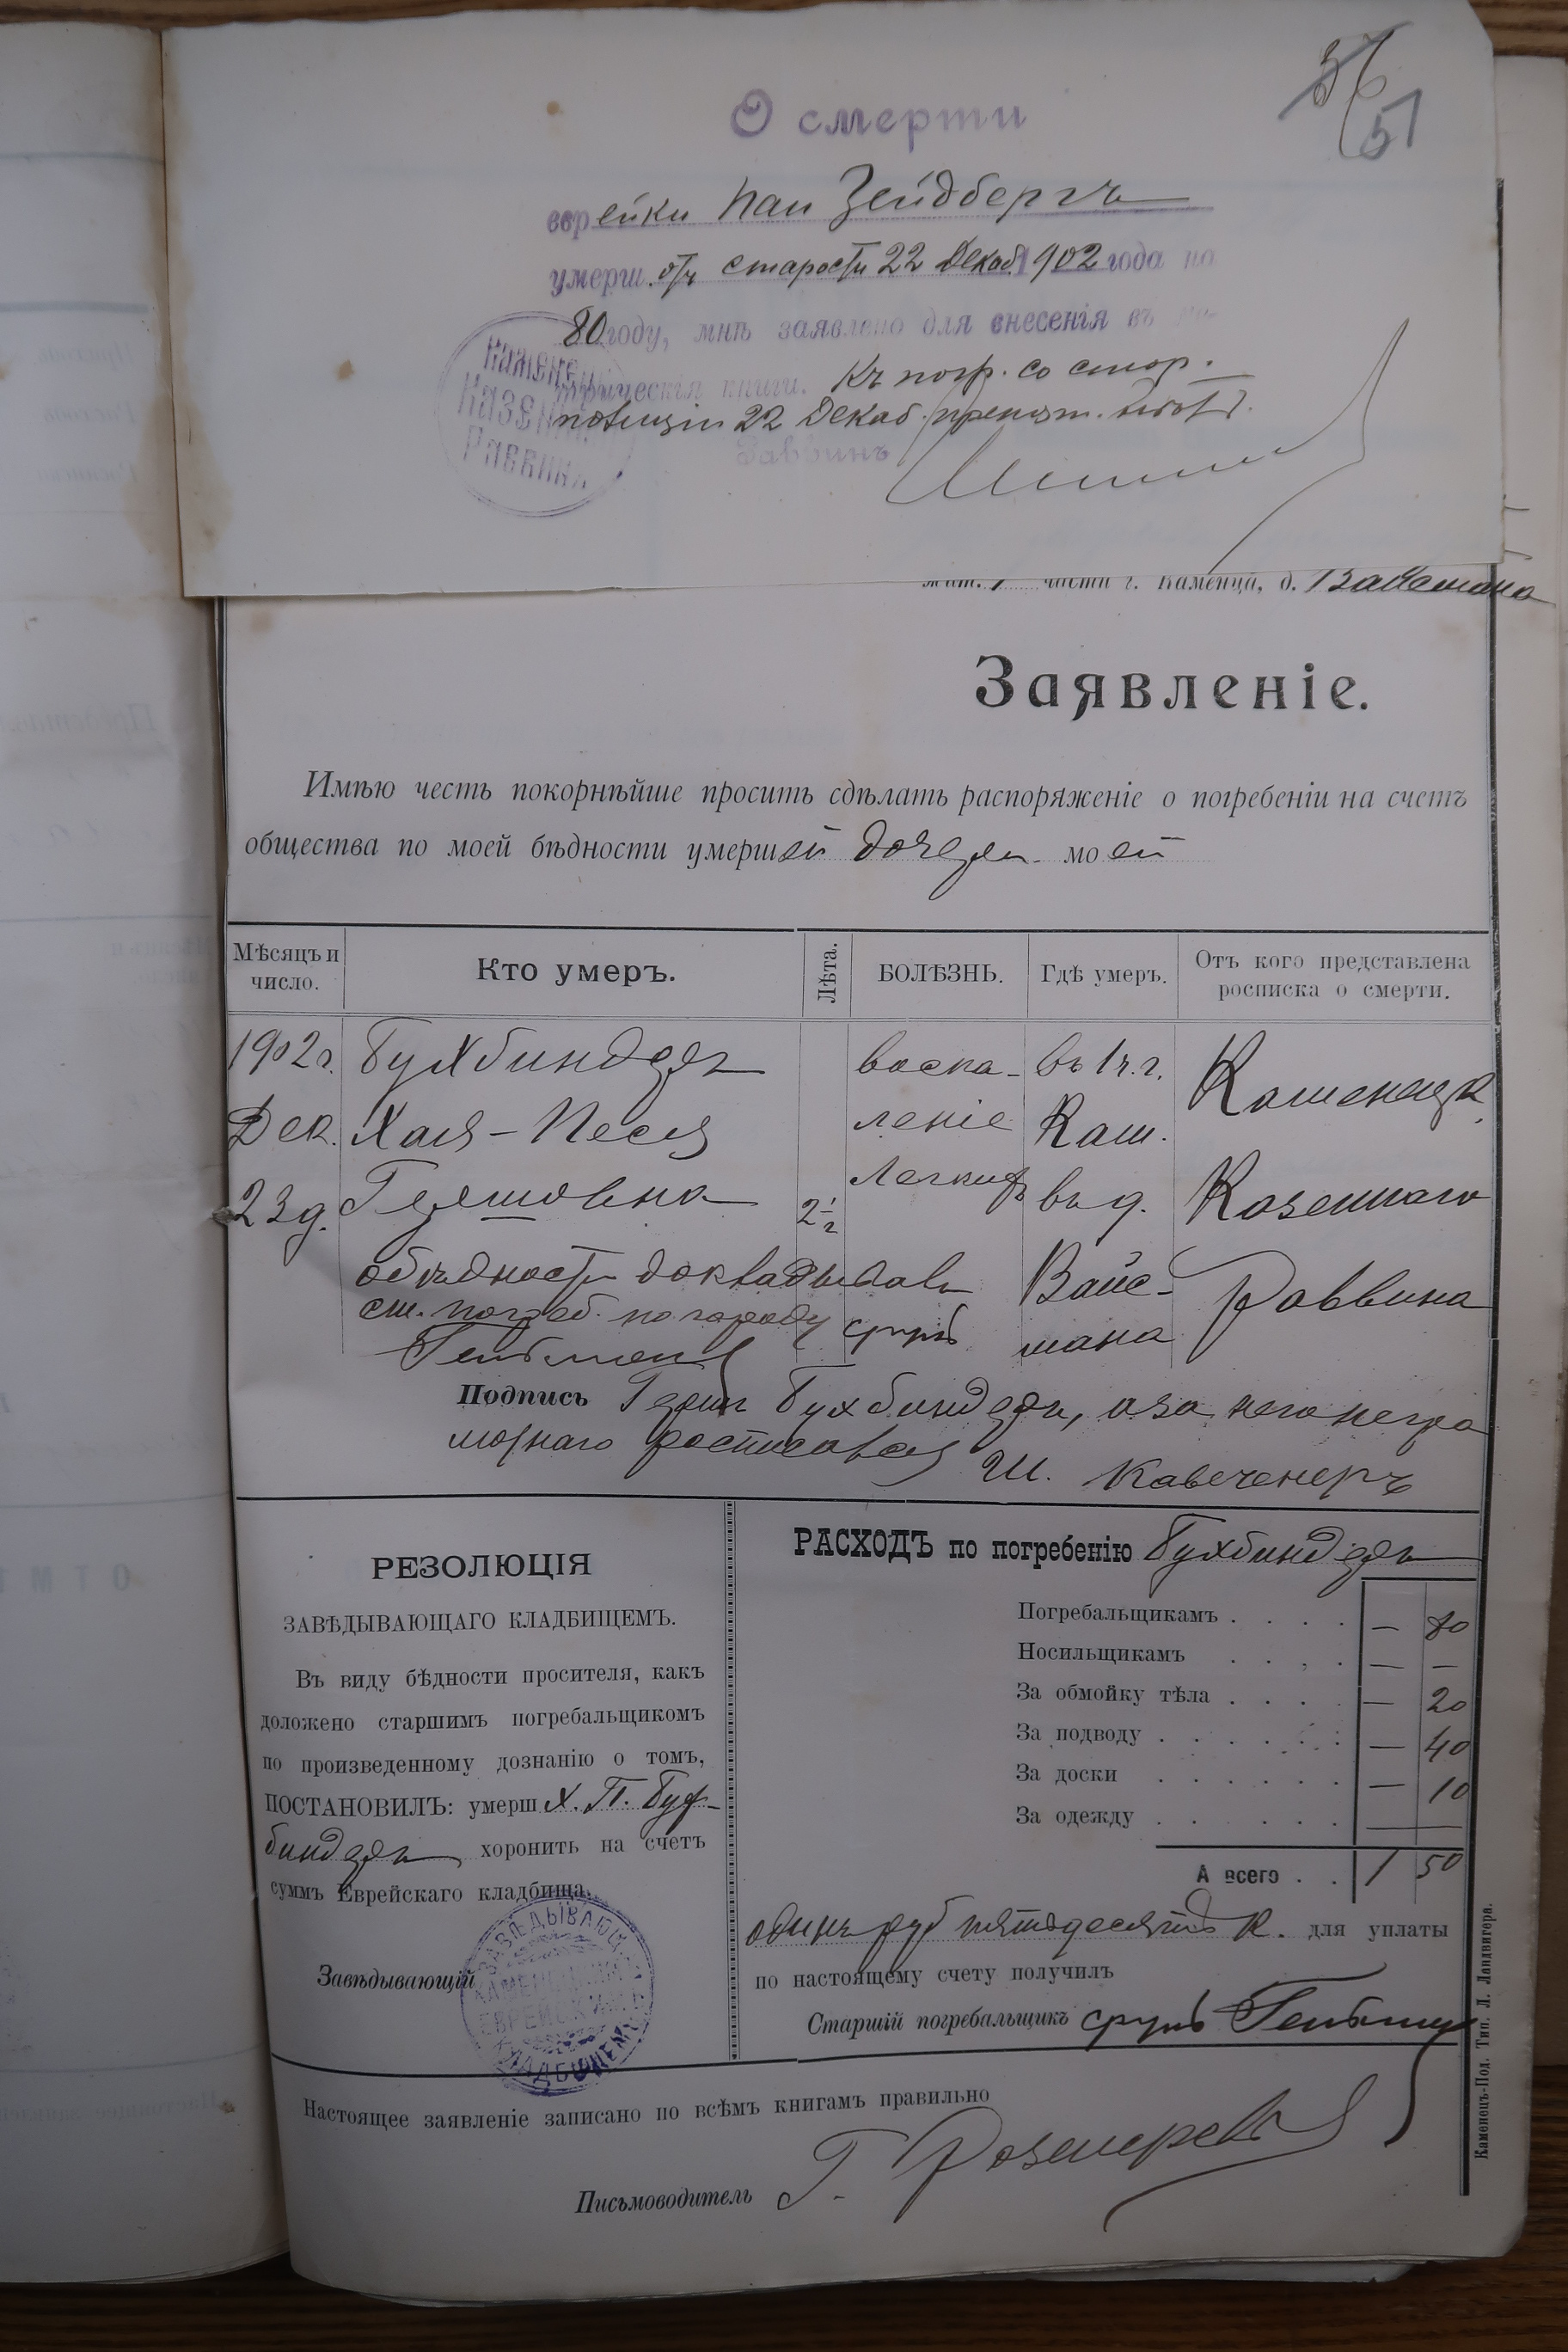 36
51
О смерти
еврейки Паи Зейдбергъ
умерш. отъ старости 22 Декаб 1902 года на
80 году, мнѣ заявлено для внесенія въ ме-
трическія книги. Къ погр. со стор.
полиціи 22 Декаб. препят. нѣтъ.
Раввинъ
Камене
Казен
Раввина
жит. 1 части г. Каменца, д. Вайсмана
Заявленіе.
Имѣю честь покорнѣйше просить сдѣлать распоряженіе о погребеніи на счетъ
общества по моей бѣдности умершей дочери моей
Мѣсяцъ и число.
Кто умеръ.
Лѣта.
БОЛѢЗНЬ.
Гдѣ умеръ.
Отъ кого представлена росписка о смерти.
1902 г. Бухбиндеръ воспа- въ 1 ч. г. Каменецк.
Дек. Хая-Песя леніе Кам.
23 д. Гершовна 2 1/2 легкихъ въ д. Казеннаго
о бѣдности докладывалъ Вайс- Раввина
ст. погреб. по городу Сруль мана
Гельман
Подпись Гершъ Бухбиндеръ, а за него негра
мотнаго росписался Ш. Кавеченеръ
РЕЗОЛЮЦІЯ
ЗАВѢДЫВАЮЩАГО КЛАДБИЩЕМЪ.
Въ виду бѣдности просителя, какъ
доложено старшимъ погребальщикомъ
по произведенному дознанію о томъ,
ПОСТАНОВИЛЪ: умерш Х. П. Бух-
биндеръ хоронить на счетъ
суммъ Еврейскаго кладбища.
Завѣдывающій
ЗАВѢДЫВАЮЩ
КАМЕНЕЦКИМ
ЕВРЕЙСКИМ
КЛАДБИЩЕМЪ
РАСХОДЪ по погребенію Бухбиндеръ
Погребальщикамъ . . . . — 80
Носильщикамъ . . . . — —
За обмойку тѣла . . . . — 20
За подводу . . . . . . — 40
За доски . . . . . . — 10
За одежду . . . . . . —
А всего . . 1 50
одинъ руб пятьдесятъ к. для уплаты
по настоящему счету получилъ
Старшій погребальщикъ Сруль Гельман
Настоящее заявленіе записано по всѣмъ книгамъ правильно
Письмоводитель Г.
Каменецъ-Под. Тип. Л. Ландвигера.